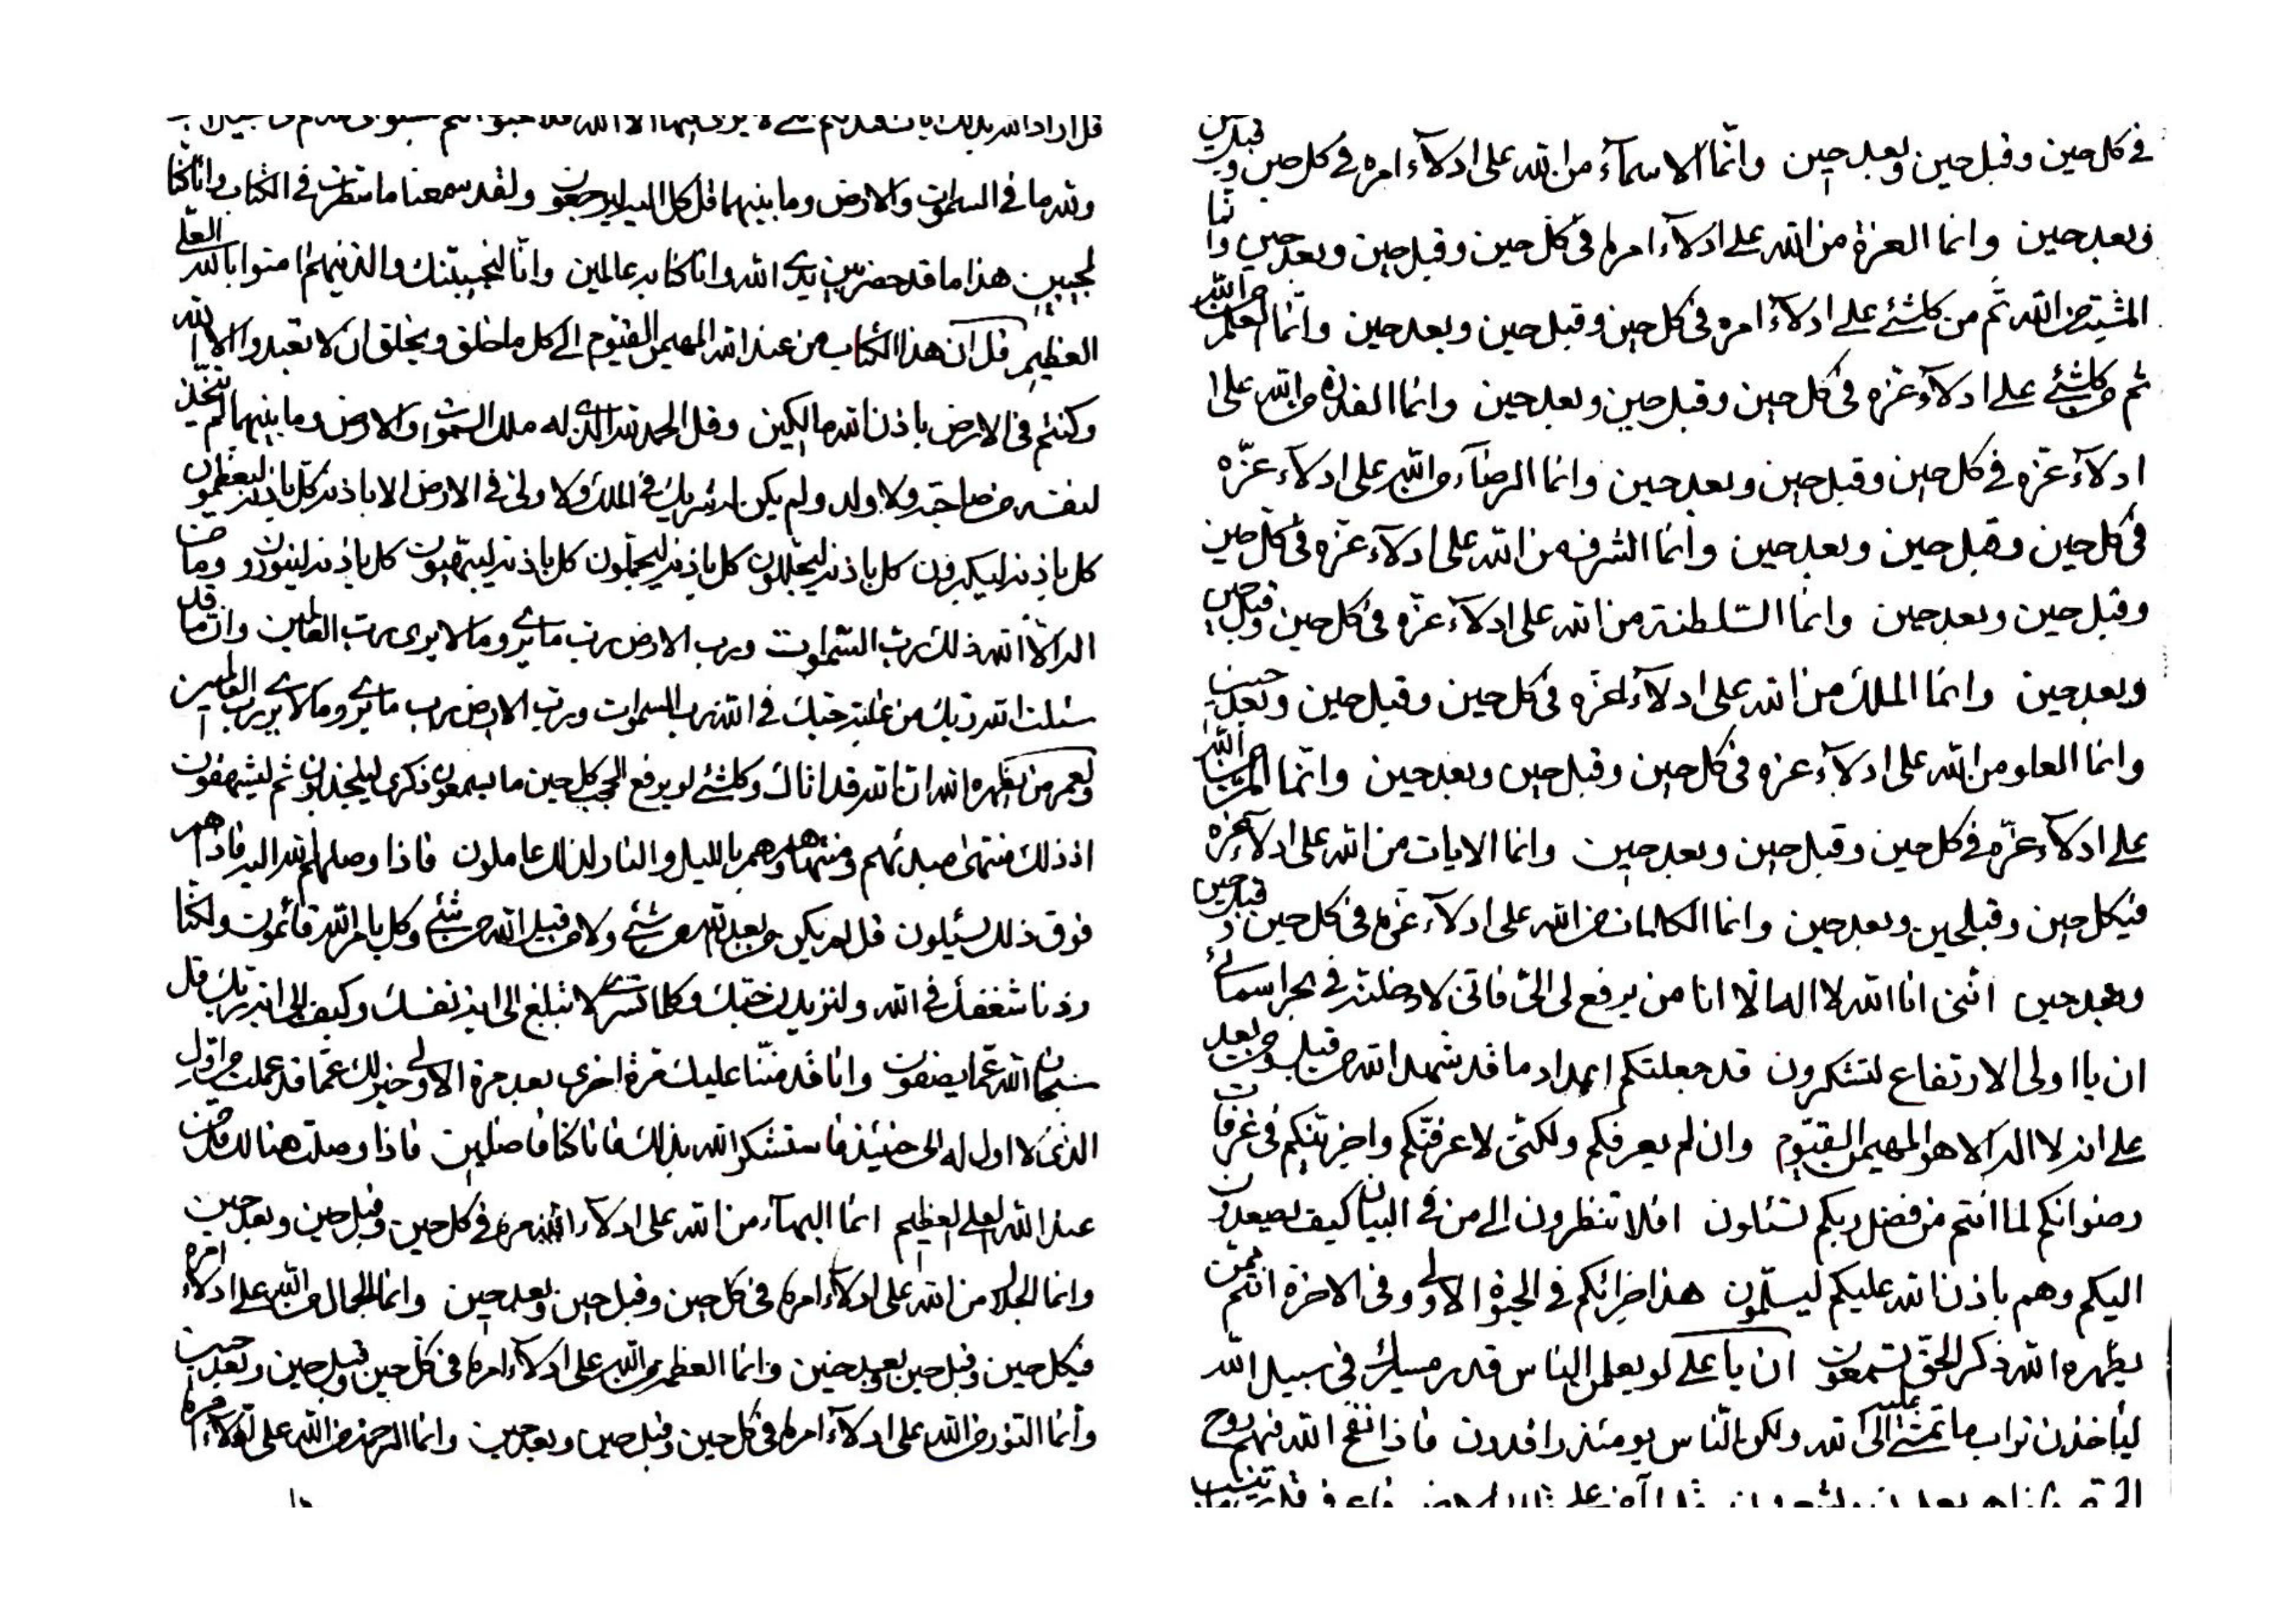 ولله ما في السموات والارض وما بينهما قل كل اليه ليرجعون ولقد سمعنا ما تنظرن في الكتاب وانا كنا
لمجيبين هذا ما قد حضر بين يدي الله وانا كنا به عالمين وانا لنجيبنك والذينهم امنوا بالله العلي
العظيم قل ان هذا الكتاب من عند الله المهيمن القيوم الى كل ما خلق ويخلق ان لا تعبدوا الا الله
وكنتم في الارض باذن الله مالكين وقل الحمد لله الذي له ملك السموات والارض وما بينهما لم يتخذ
لنفسه من صاحبة ولا ولد ولم يكن له شريك في الملك ولا ولي في الارض الا باذنه كل باذنه ليعظمون
كل باذنه ليكبرون كل باذنه ليجللون كل باذنه ليجملون كل باذنه ليبتهيون كل باذنه لينورون وما من
اله الا الله ذلك رب السموات ورب الارض رب ما يرى وما لا يرى رب العالمين وان ما قد
سئلت الله ربك من غلبة حبك في الله رب السموات ورب الارض رب ما يرى وما لا يرى رب العالمين
ولعمر من يظهره الله ان الله قد اتاك وكلشئ لو يرفع الحجب كل حين ما يسمعون ذكرى ليلجذبون ثم ليشهقون
اذ ذلك منتهى مبدئهم ومنتهاهم وهم بالليل والنهار لذلك عاملون فاذا وصلهم الله اليه فاذا هم
فوق ذلك يسئلون قل لم يكن من بعد الله من شئ ولا من قبل الله من شئ وكل بامر الله قائمون ولكنا
زدنا شغفك في الله ولنزيدن حبك وكلما تسرى لا تبلغ الى ابذ نفسك وكيف الى ابذ ربك قل
سبحان الله عما يصفون وانا قد مننا عليك مرة اخرى بعد مرة الاولى خير لك عما قد عملت من اول
الذي لا اول له الى حينئذ فاستشكر الله بذلك فانا كنا فاضلين فاذا وصلت هنالك فان من
عند الله العلي العظيم انما البهاء من الله على ادلاء امره في كل حين وقبل حين وبعد حين
وانما الجلال من الله على ادلاء امره في كل حين وقبل حين وبعد حين وانما الجمال من الله على ادلاء امره
فيكل حين وقبل حين وبعد حين وانما العظمة من الله على ادلاء امره في كل حين وقبل حين وبعد حين
وانما النور من الله على ادلاء امره في كل حين وقبل حين وبعد حين وانما الرحمة من الله على ادلاء امره
في كل حين وقبل حين وبعد حين وانما الاسماء من الله على ادلاء امره في كل حين وقبل حين
وبعد حين وانما العزة من الله على ادلاء امره في كل حين وقبل حين وبعد حين وانما
المشية من الله ثم من كلشئ على ادلاء امره في كل حين وقبل حين وبعد حين وانما العلم من الله
ثم من كلشئ على ادلاء عزه في كل حين وقبل حين وبعد حين وانما القدرة من الله على ا
ادلاء عزه في كل حين وقبل حين وبعد حين وانما الرضاء من الله على ادلاء عزه
في كل حين وقبل حين وبعد حين وانما الشرف من الله على ادلاء عزه في كل حين
وقبل حين وبعد حين وانما السلطنة من الله على ادلاء عزه في كل حين وقبل حين
وبعد حين وانما الملك من الله على ادلاء عزه في كل حين وقبل حين وبعد حين
وانما العلو من الله على ادلاء عزه في كل حين وقبل حين وبعد حين وانما من الله
على ادلاء عزه في كل حين وقبل حين وبعد حين وانما الايات من الله على ادلاء عزه
فيكل حين وقبلحين وبعد حين وانما الكلمات من الله على ادلاء عزه في كل حين وقبل حين
وبعد حين انني انا الله لا اله الا انا من يرفع لي الي فاني لادخلنه في بحر اسمائي
ان يا اولى الارتفاع لتشكرون قد جعلتكم اعداد ما قد شهد الله من قبل ومن بعد
على انه لا اله الا هو المهيمن القيوم وان لم يعرفكم ولكني لاعرفنكم واجزينكم في غرفات
رضوانكم لما انتم من فضل ربكم تسئلون افلا تنظرون الى من في البيان كيف يصعدن
اليكم وهم باذن الله عليكم ليسلمون هذا جزائكم في الحيوة الاولى وفي الاخرة انتم ممن
يظهره الله ذكر الحق تسمعون ان يا علي لو يعلمن الناس قدر مسيرك في سبيل الله
ليأخذن تراب ما تمشي عليه الى الله ولكن الناس يومئذ راقدون فاذا نفخ الله فيهم روح